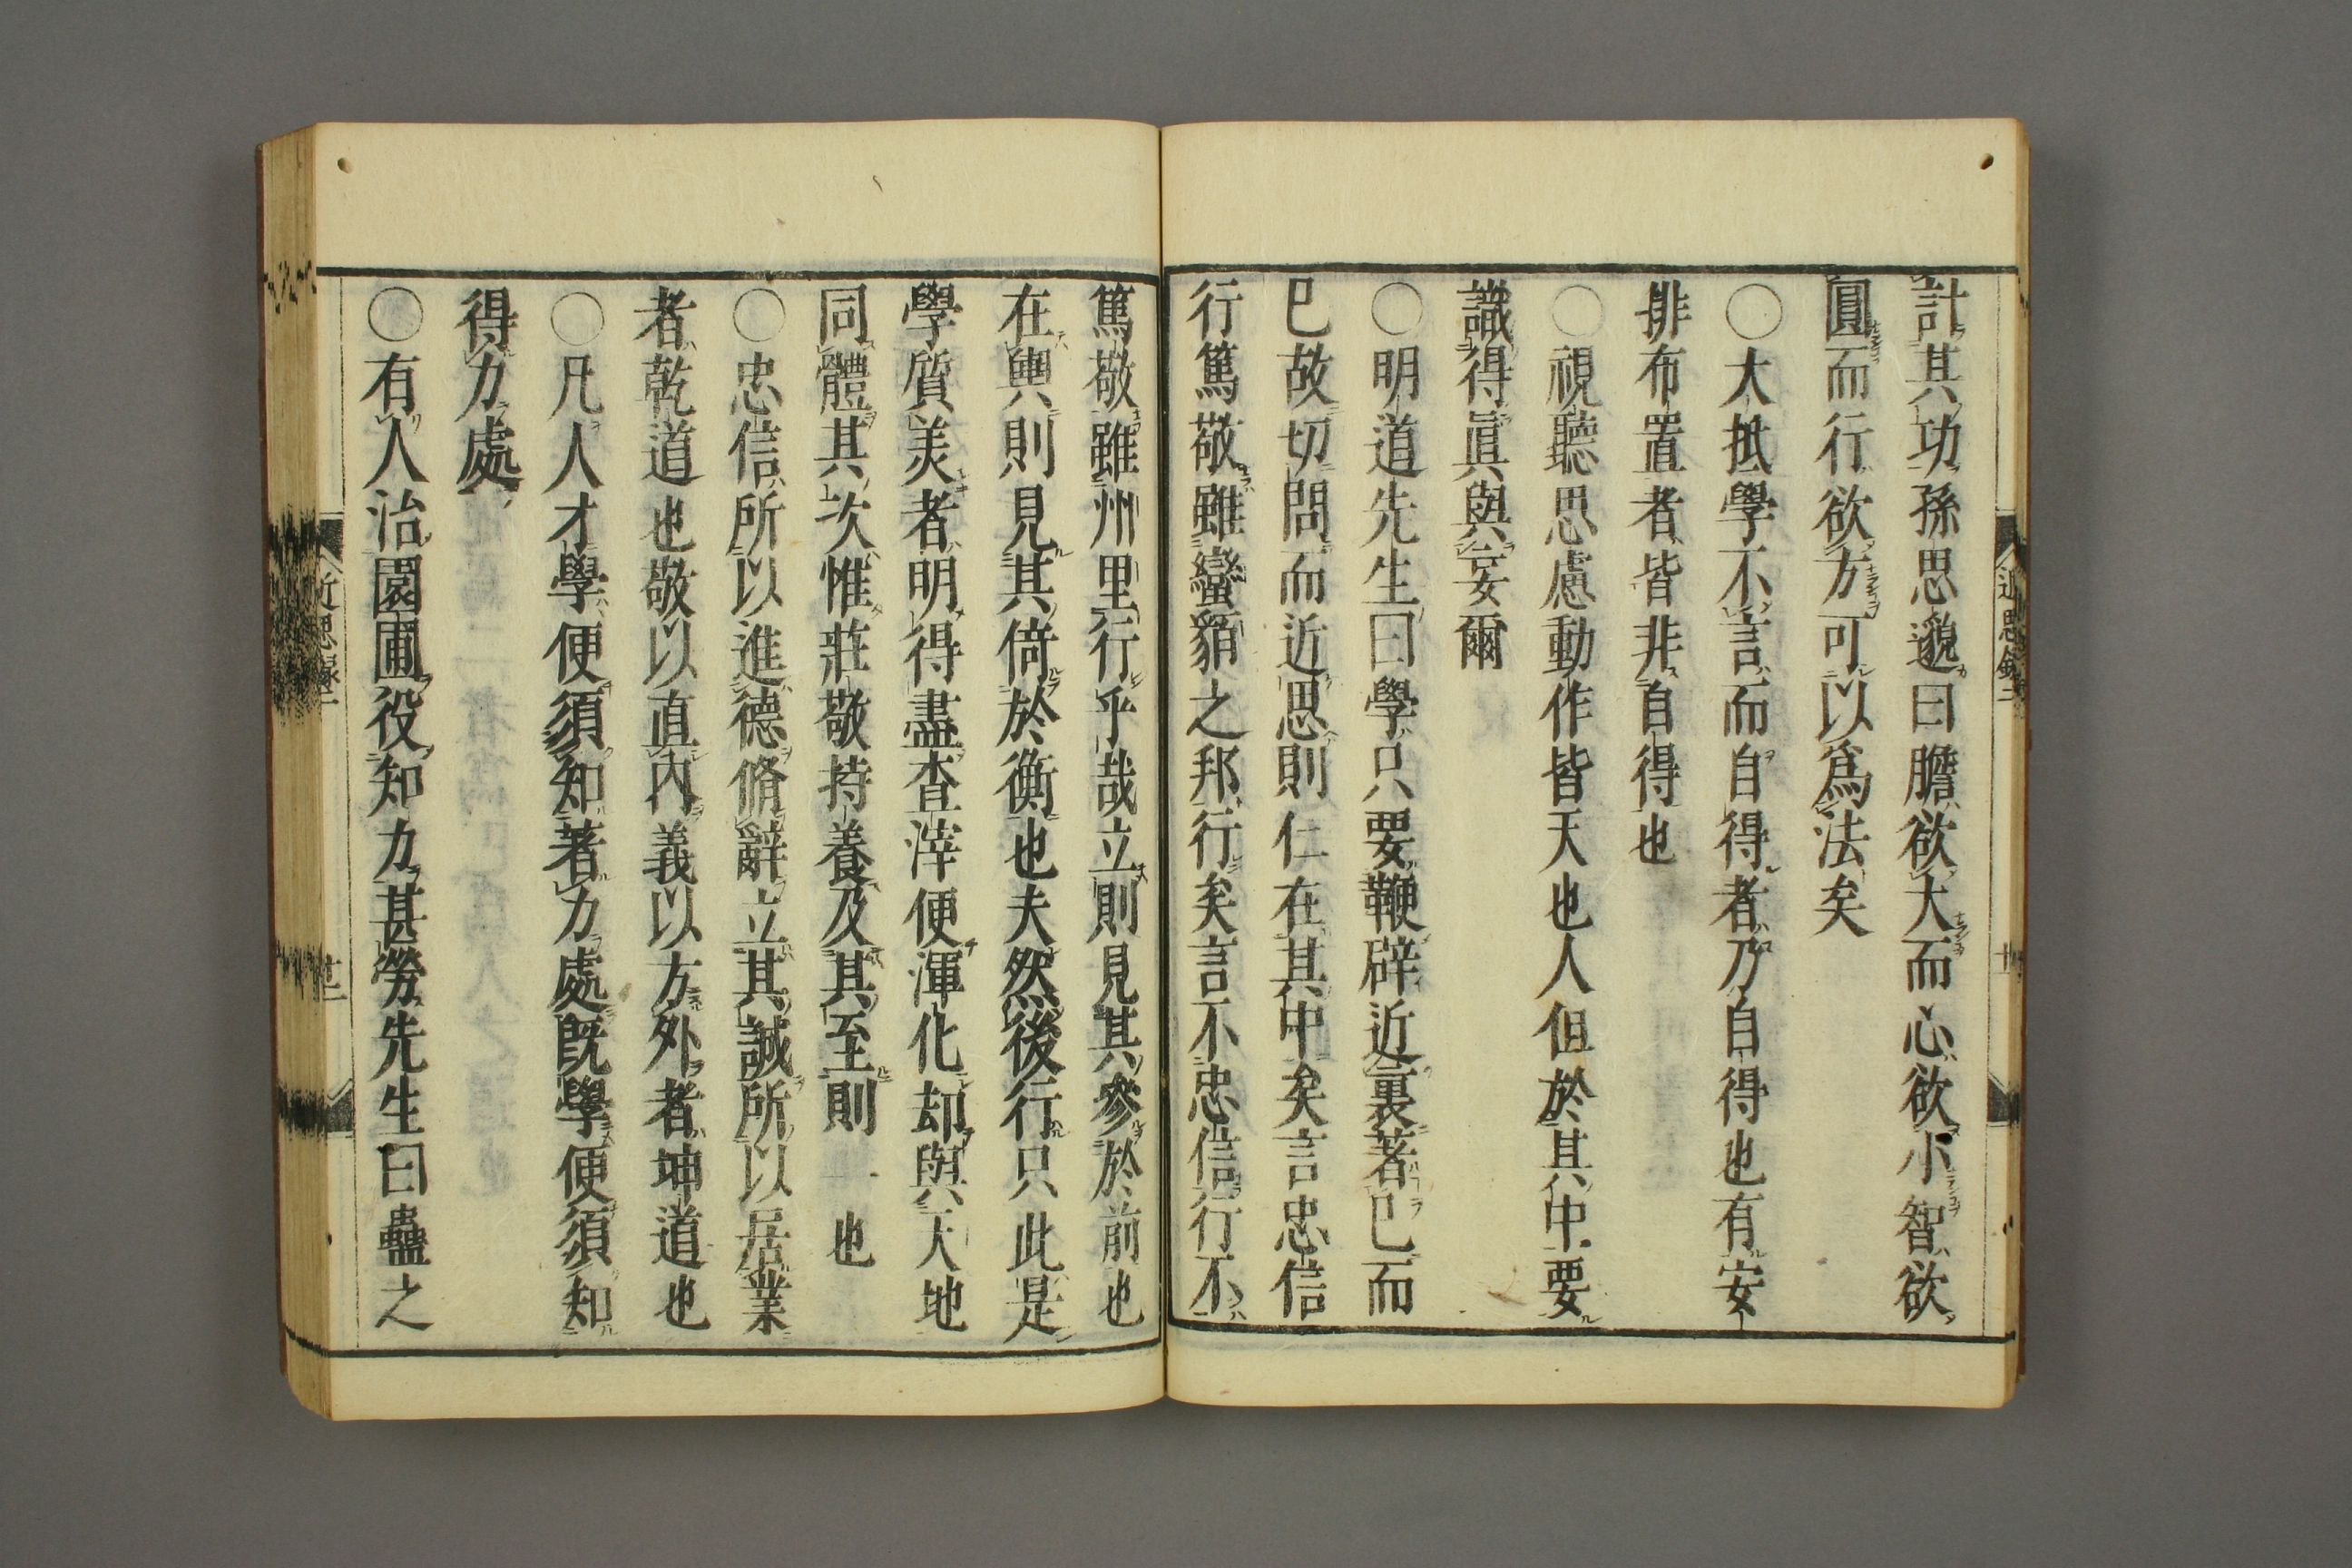 計其功孫思邈曰膽欲大而心欲小智欲
圓而行欲方可以爲法矣
○大抵學不言而自得者乃自得也有安
排布置者皆非自得也
○視聽思慮動作皆天也人但於其中要
識得眞與妄爾
○明道先生曰學只要鞭辟近裏著己而
已故切問而近思則仁在其中矣言忠信
行篤敬雖蠻貊之邦行矣言不忠信行不
篤敬雖州里行乎哉立則見其參於前也
在輿則見其倚於衡也夫然後行只此是
學質美者明得盡査滓便渾化却與天地
同體其次惟莊敬持養及其至則一也
○忠信所以進德脩辭立其誠所以居業
者乾道也敬以直內義以方外者坤道也
○凡人才學便須知著力處既學便須知
得力處
○有人治園圃役知力甚勞先生曰蠱之
近思錄二